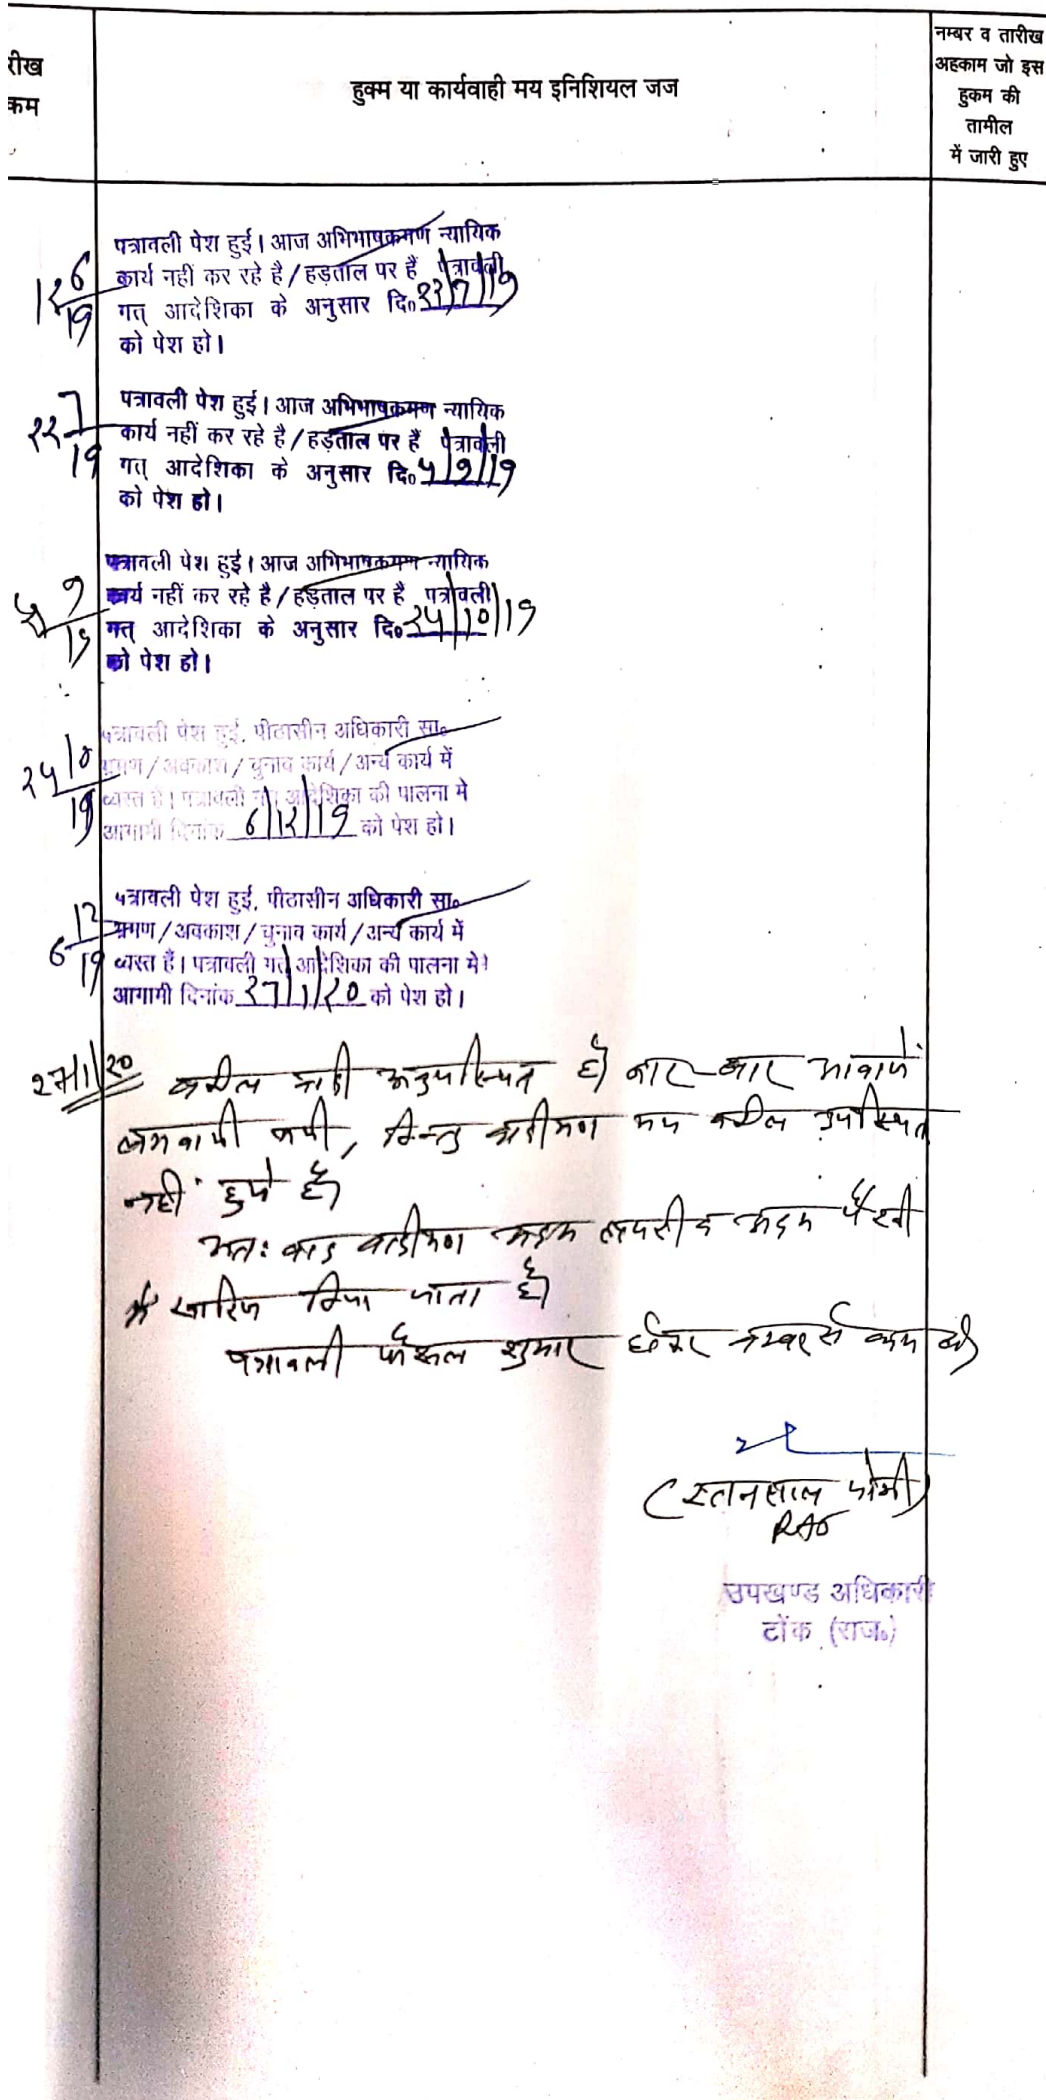 रीख
कम
हुक्म या कार्यवाही मय इनिशियल जज
नम्बर व तारीख
अहकाम जो इस
हुकम की
तामील
में जारी हुए
12/6/19
पत्रावली पेश हुई। आज अभिभाषकगण न्यायिक
कार्य नहीं कर रहे है/हड़ताल पर हैं पत्रावली
गत् आदेशिका के अनुसार दि० 22/7/19
को पेश हो।
22/7/19
पत्रावली पेश हुई। आज अभिभाषकगण न्यायिक
कार्य नहीं कर रहे है/हड़ताल पर हैं पत्रावली
गत् आदेशिका के अनुसार दि० 5/9/19
को पेश हो।
5/9/19
पत्रावली पेश हुई। आज अभिभाषकगण न्यायिक
कार्य नहीं कर रहे है/हड़ताल पर हैं पत्रावली
गत् आदेशिका के अनुसार दि० 25/10/19
को पेश हो।
25/10/19
पत्रावली पेश हुई, पीठासीन अधिकारी सा०
भ्रमण/अवकाश/चुनाव कार्य/अन्य कार्य में
व्यस्त हैं। पत्रावली गत आदेशिका की पालना मे
आगामी दिनांक 6/12/19 को पेश हो।
6/12/19
पत्रावली पेश हुई, पीठासीन अधिकारी सा०
भ्रमण/अवकाश/चुनाव कार्य/अन्य कार्य में
व्यस्त हैं। पत्रावली गत आदेशिका की पालना मे
आगामी दिनांक 27/1/20 को पेश हो।
27/1/20
वकील वादी अनुपस्थित है। बार-बार आवाजें
लगवायी गयी, किन्तु वादीगण मय वकील उपस्थित
नहीं हुये है।
अतः वाद वादीगण अदम हाजरी व अदम पैरवी
में खारिज किया जाता है।
पत्रावली फैसल शुमार होकर नम्बर से कम हो।
(रतनलाल योगी)
RAS
उपखण्ड अधिकारी
टोंक (राज०)